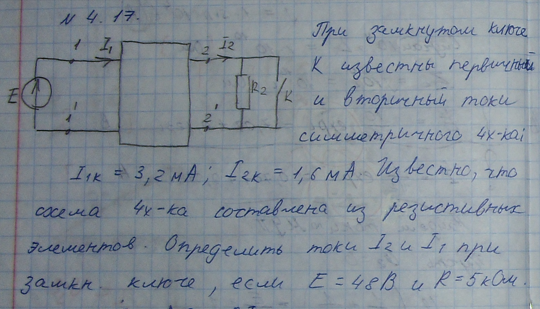 N 4.17.
При замкнутом ключе
К известны первичный
и вторичный токи
симметричного 4х-ка
1 I₁ 2 I₂
E R2 K
1' 2'
I₁к = 3,2 мА; I₂к = 1,6 мА. Известно, что
схема 4х-ка составлена из резистивных
элементов. Определить токи I₂ и I₁ при
замкн. ключе, если E = 48В и R = 5 кОм.